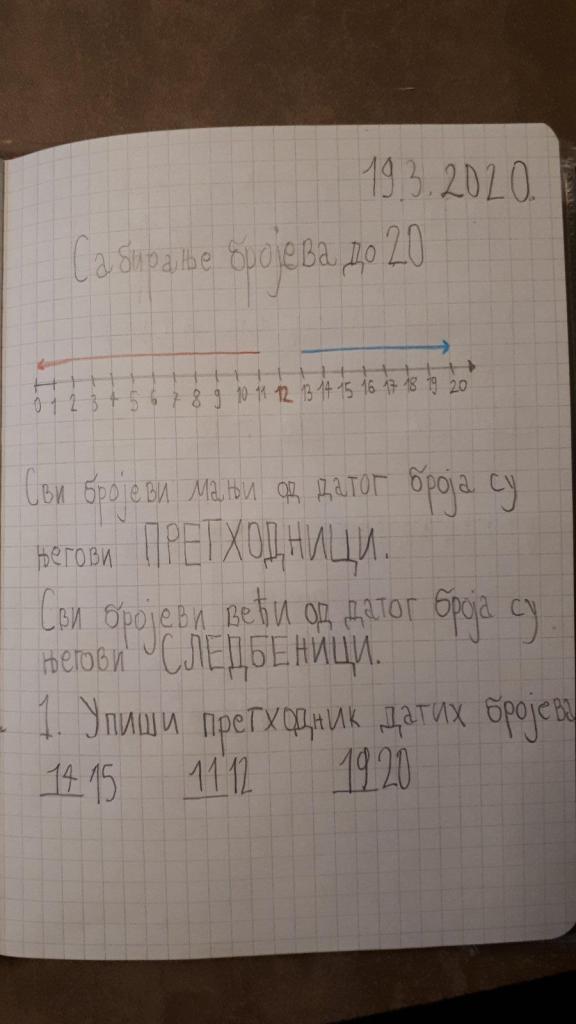 19.3.2020.
Сабирање бројева до 20
0 1 2 3 4 5 6 7 8 9 10 11 12 13 14 15 16 17 18 19 20
Сви бројеви мањи од датог броја су
његови ПРЕТХОДНИЦИ.
Сви бројеви већи од датог броја су
његови СЛЕДБЕНИЦИ.
1. Упиши претходник датих бројева
14 15 11 12 19 20